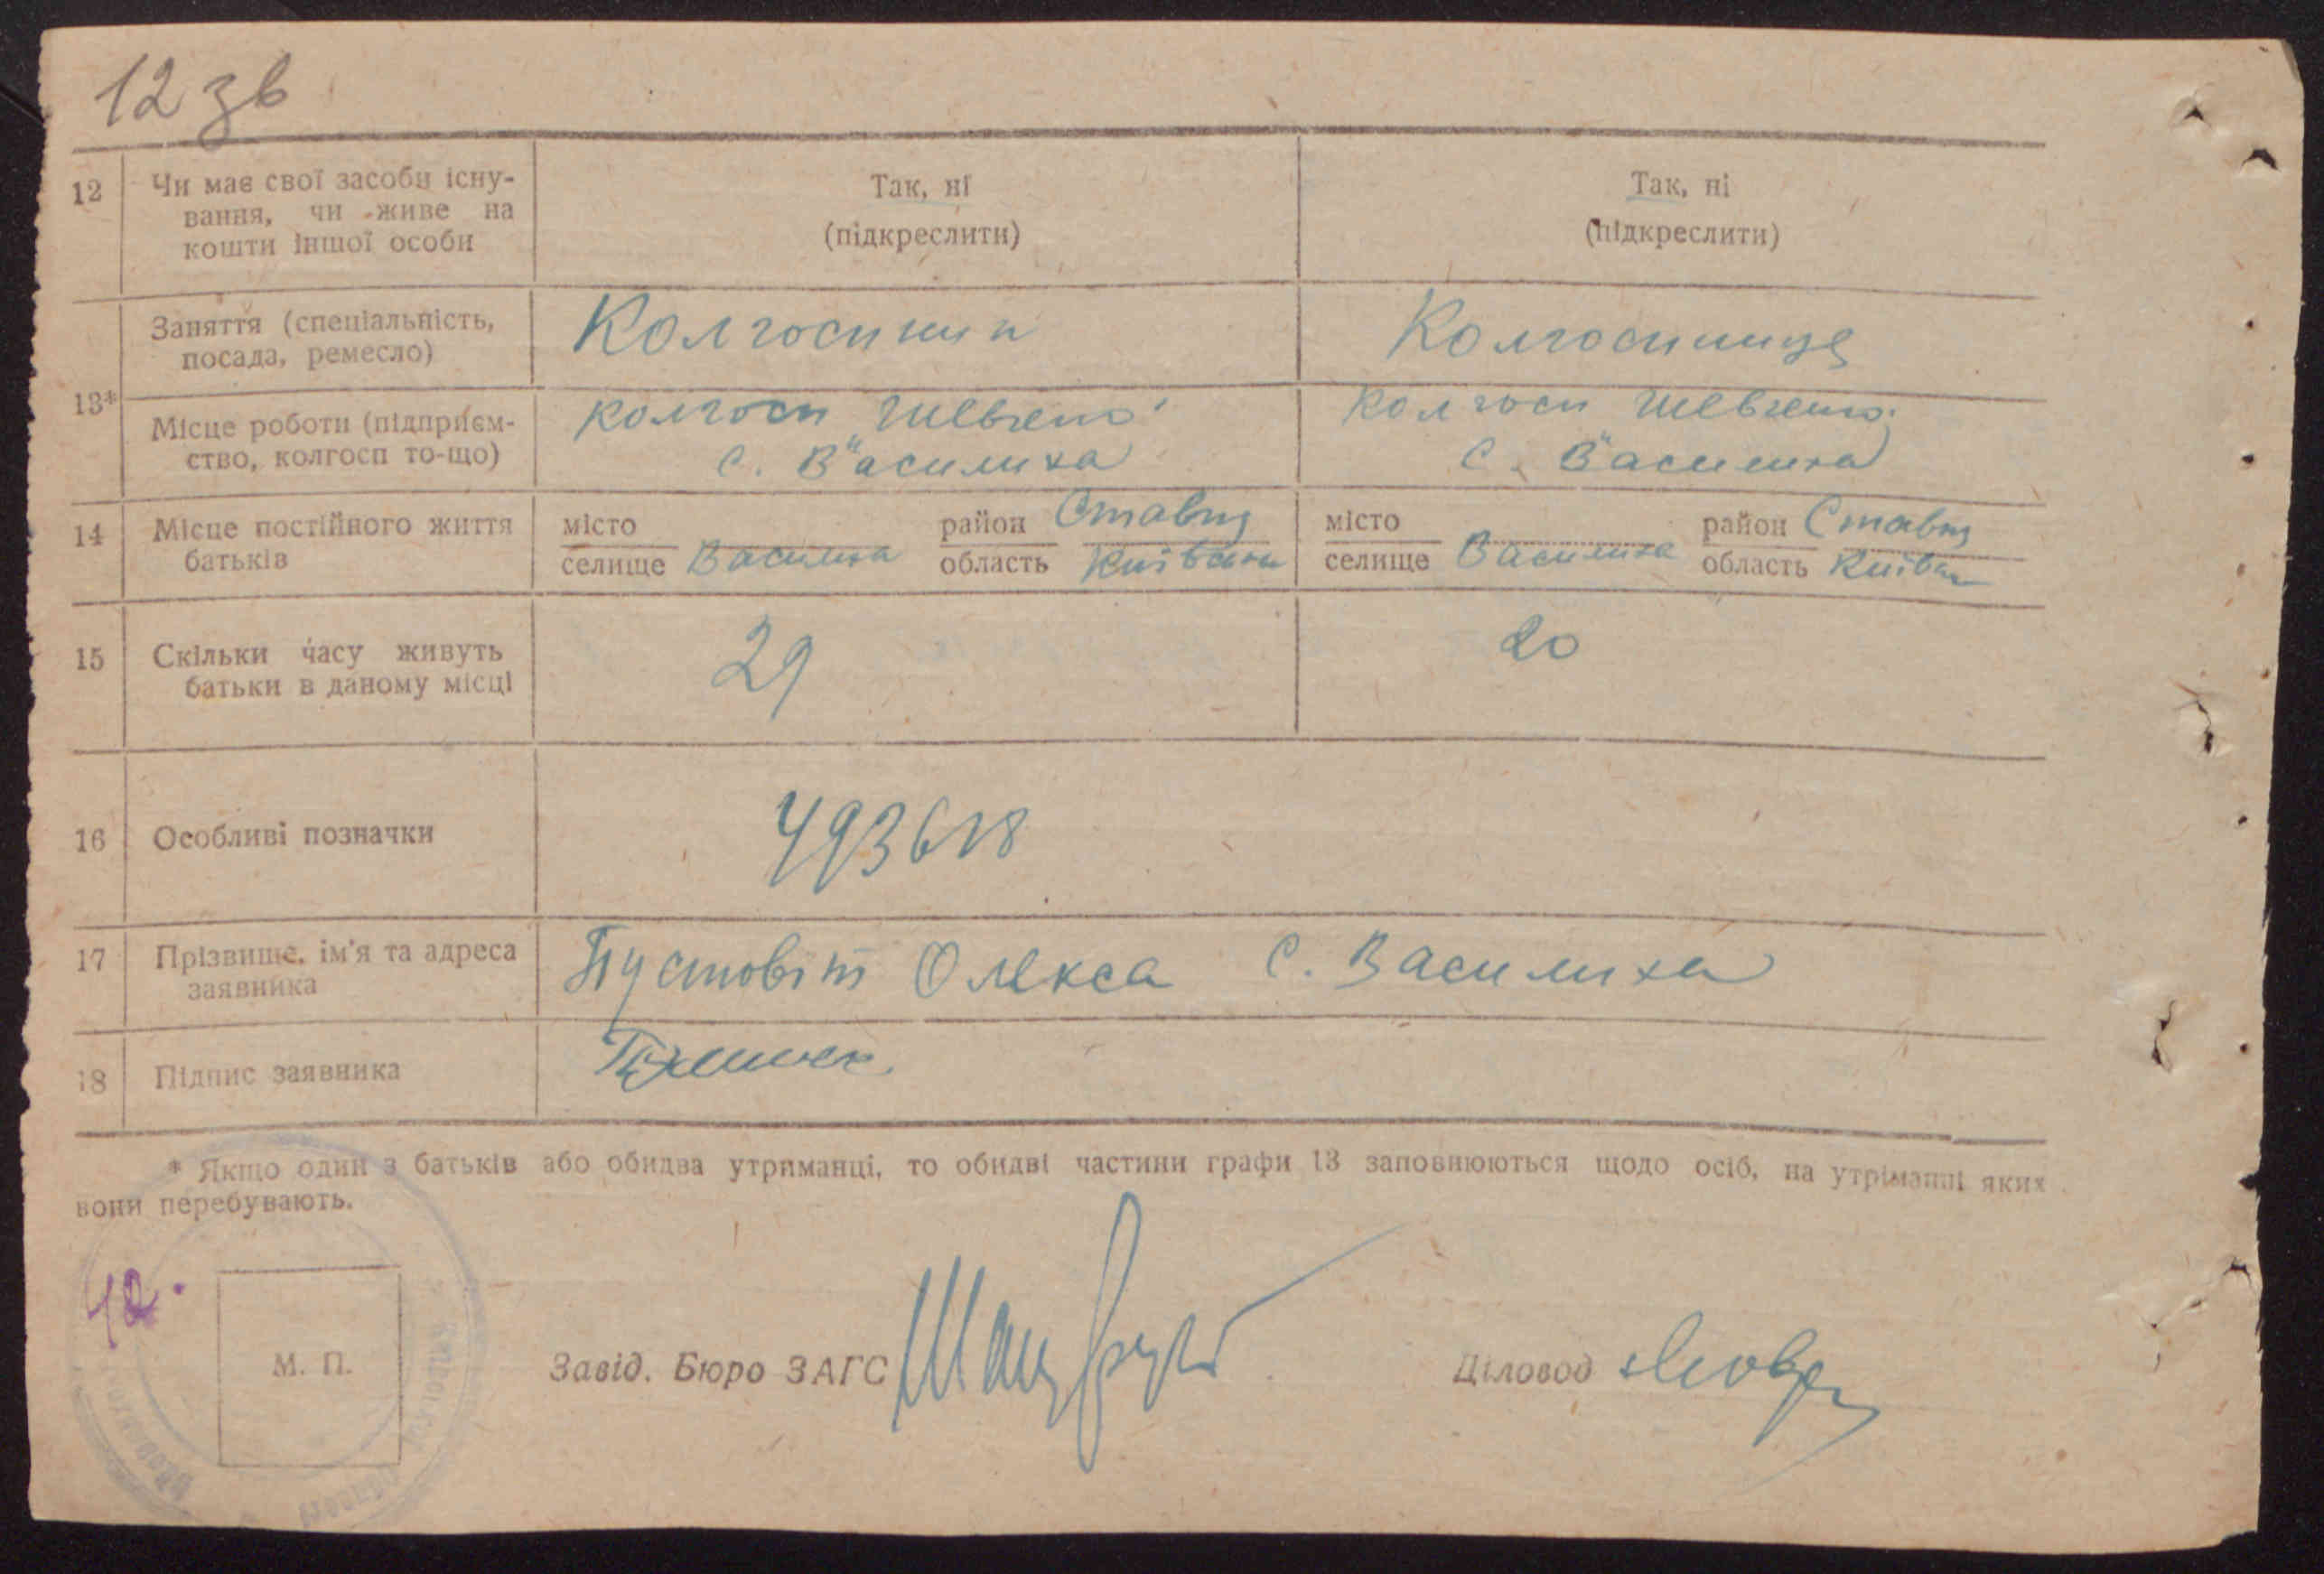 12 зв
12 Чи має свої засоби існу-
вання, чи живе на
кошти іншої особи
Так, ні
(підкреслити)
Так, ні
(підкреслити)
13*
Заняття (спеціальність,
посада, ремесло)
Колгоспник
Колгоспниця
Місце роботи (підприєм-
ство, колгосп то-що)
колгосп Шевченко
с. Василиха
колгосп Шевченко
с. Василиха
14 Місце постійного життя
батьків
місто
селище Василиха
район Ставищ
область Київська
місто
селище Василиха
район Ставищ
область Київськ
15 Скільки часу живуть
батьки в даному місці
29
20
16 Особливі позначки
493618
17 Прізвище, ім'я та адреса
заявника
Пустовіт Олекса с. Василиха
18 Підпис заявника
* Якщо один з батьків або обидва утриманці, то обидві частини графи 13 заповнюються щодо осіб, на утріманні яких
вони перебувають.
12.
М. П.
Завід. Бюро ЗАГС
Діловод